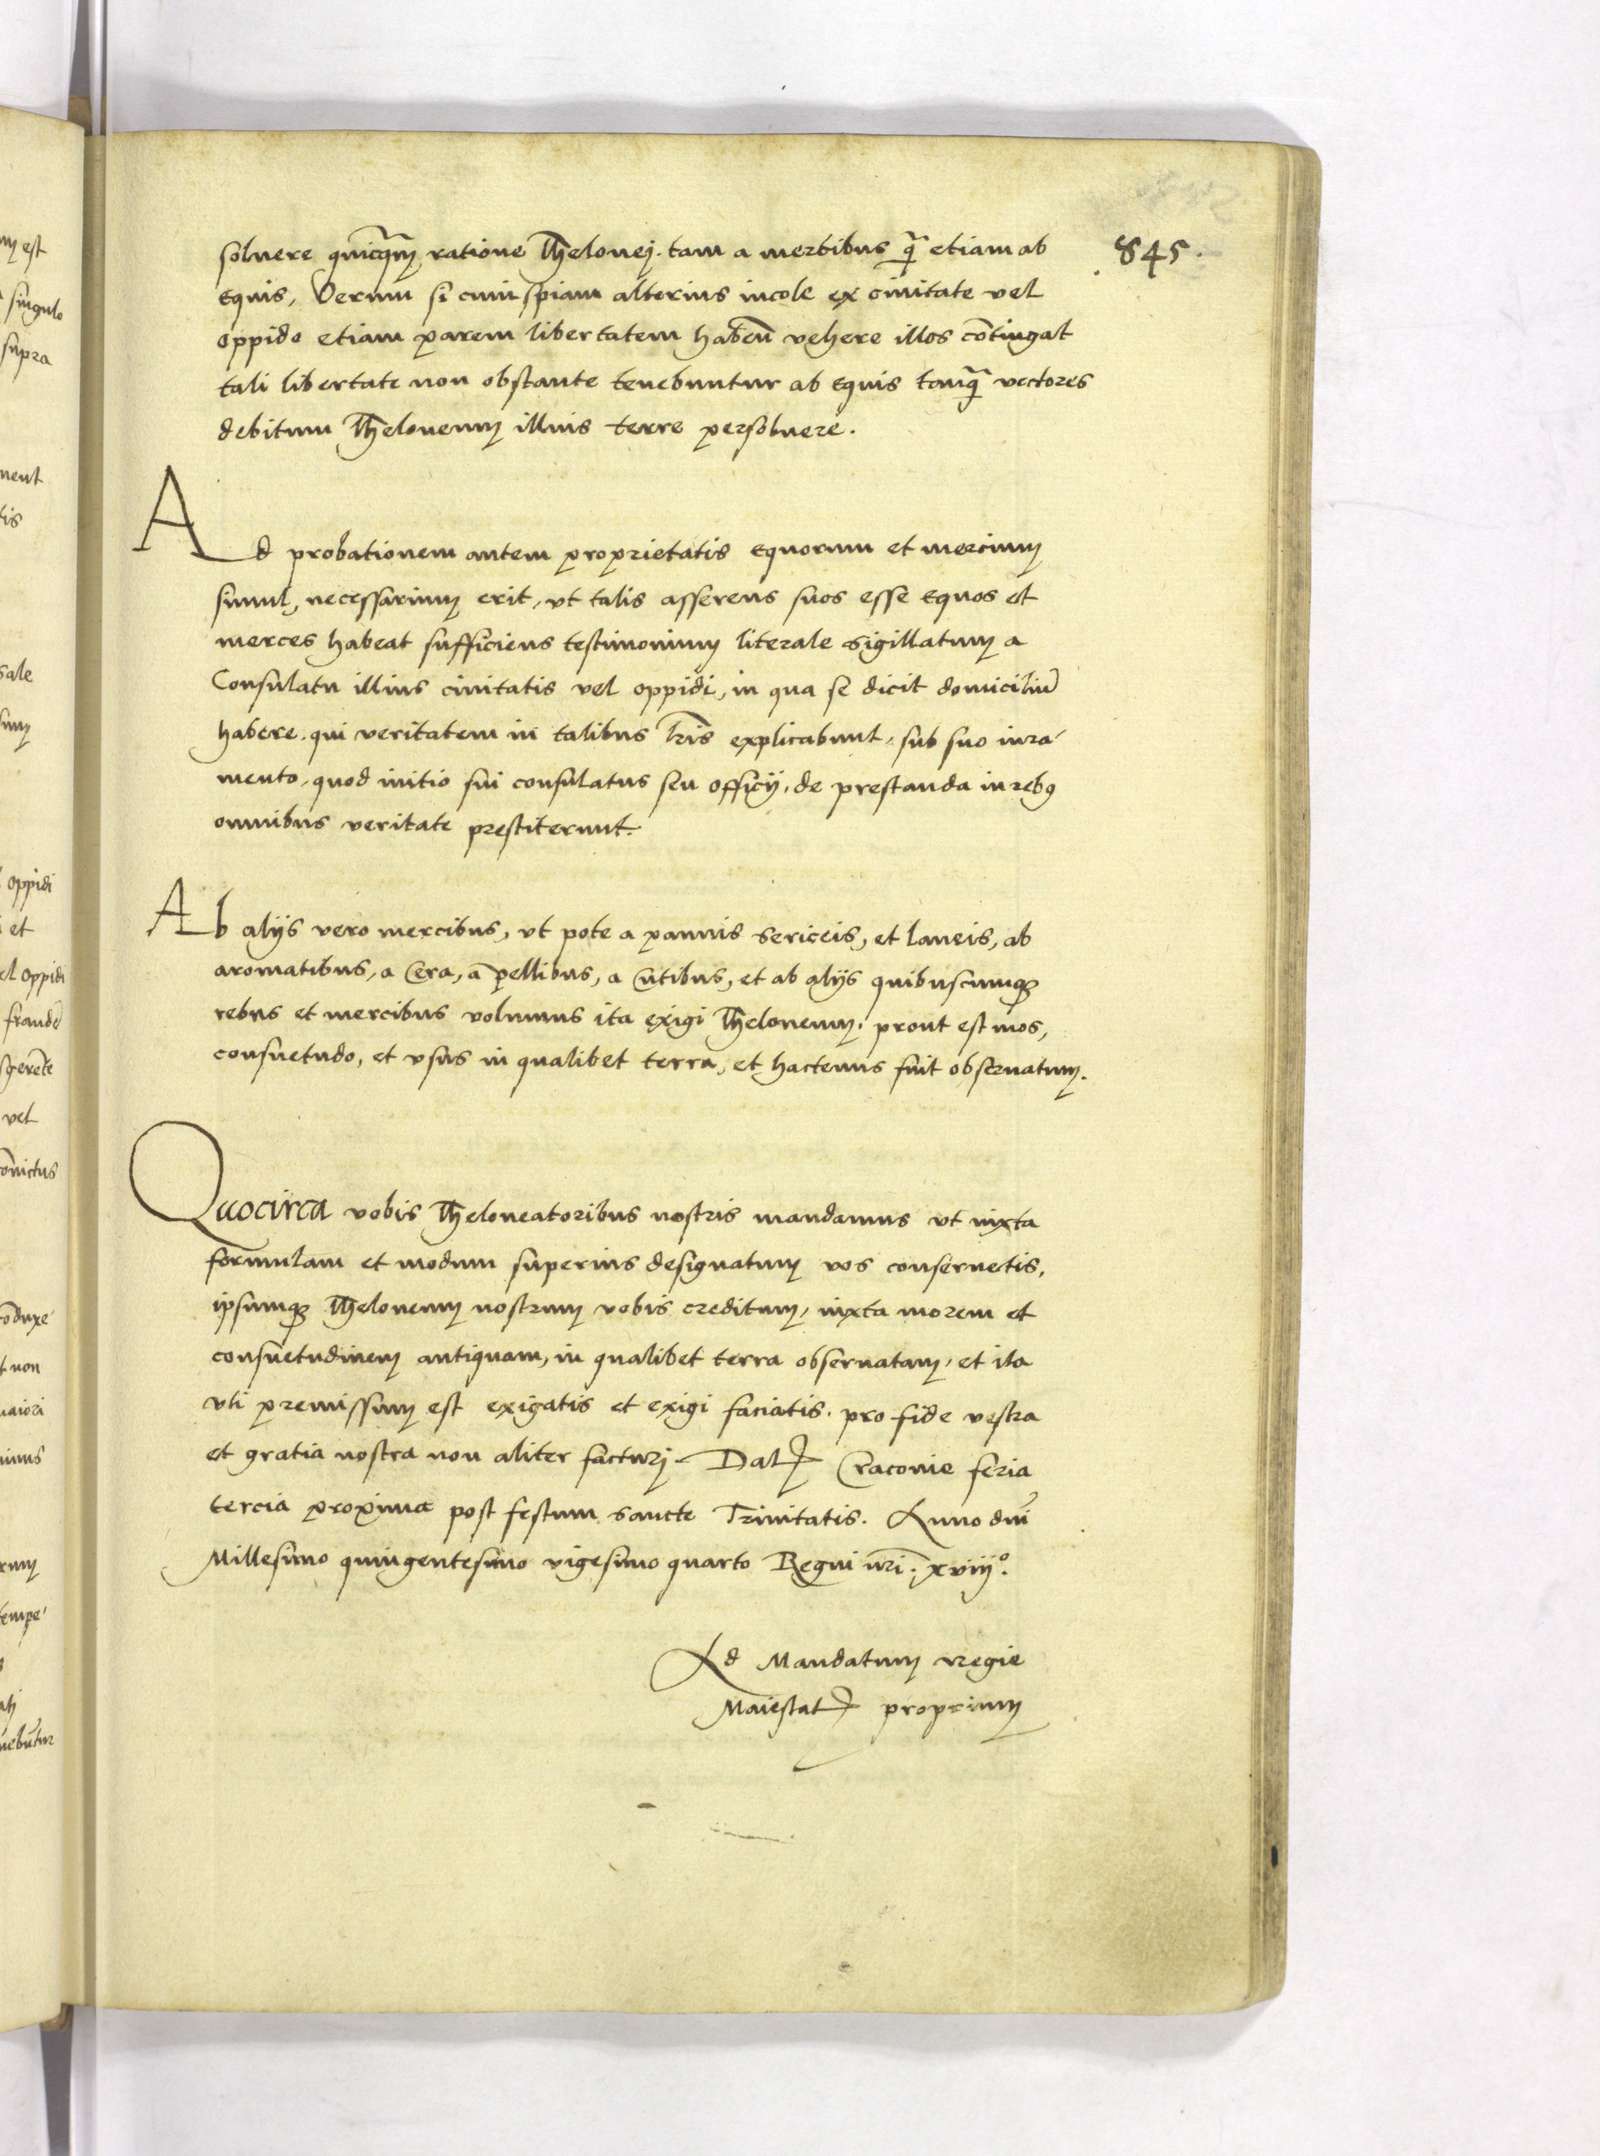 845.
soluere quicq̃ꝫ ratione Thelonej. tam a mercibus q̃ etiam ab
equis, Verum si cuiuspiam alterius incole ex ciuitate vel
oppido etiam parem libertatem habeñ vehere illos cõtingat
tali libertate non obstante tenebuntur ab equis tanq̃ vectores
debitum Theloneum illius terre persoluere.
Ad probationem autem proprietatis equorum et mercium
simul, necessarium erit, vt talis asserens suos esse equos et
merces habeat sufficiens testimonium literale sigillatum a
Consulatu illius ciuitatis vel oppidi, in qua se dicit domiciliũ
habere. qui veritatem in talibus lr̃is explicabunt, sub suo iura
mento, quod initio sui consulatus seu officij, de prestanda in rebꝰ
omnibus veritate prestiterunt.
Ab alijs vero mercibus, vt pote a pannis sericeis, et laneis, ab
aromatibus, a Cera, a pellibus, a Cutibus, et ab alijs quibuscumqꝫ
rebus et mercibus volumus ita exigi Theloneum. prout est mos,
consuetudo, et vsus in qualibet terra, et hactenus fuit obseruatum.
Quocirca vobis Theloneatoribus nostris mandamus vt iuxta
formulam et modum superius designatum vos conseruetis,
ipsumqꝫ Theloneum nostrum vobis creditum, iuxta morem et
consuetudinem antiquam, in qualibet terra obseruatam, et ita
vti premissum est exigatis et exigi faciatis. pro fide vestra
et gratia nostra non aliter facturj. Datꝭ Craconie feria
tercia proxima post festum sancte Trinitatis. Anno dñi
Millesimo quingentesimo vigesimo quarto Regni nr̃i. xviij°.
Ad Mandatum regie
Maiestatꝭ proprium